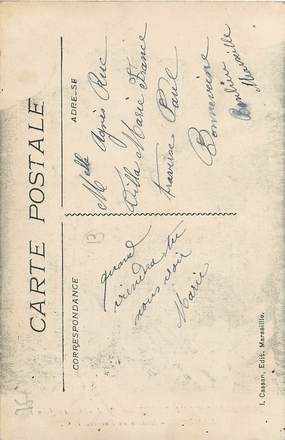 CARTE POSTALE
CORRESPONDANCE
ADRESSE
quand
viendra tu
nous voir
Marie
Melle Agnès Ruc
Villa Marie France
traverse Paul
Bonneveine
Marseille
I. Casson, Edit. Marseille.